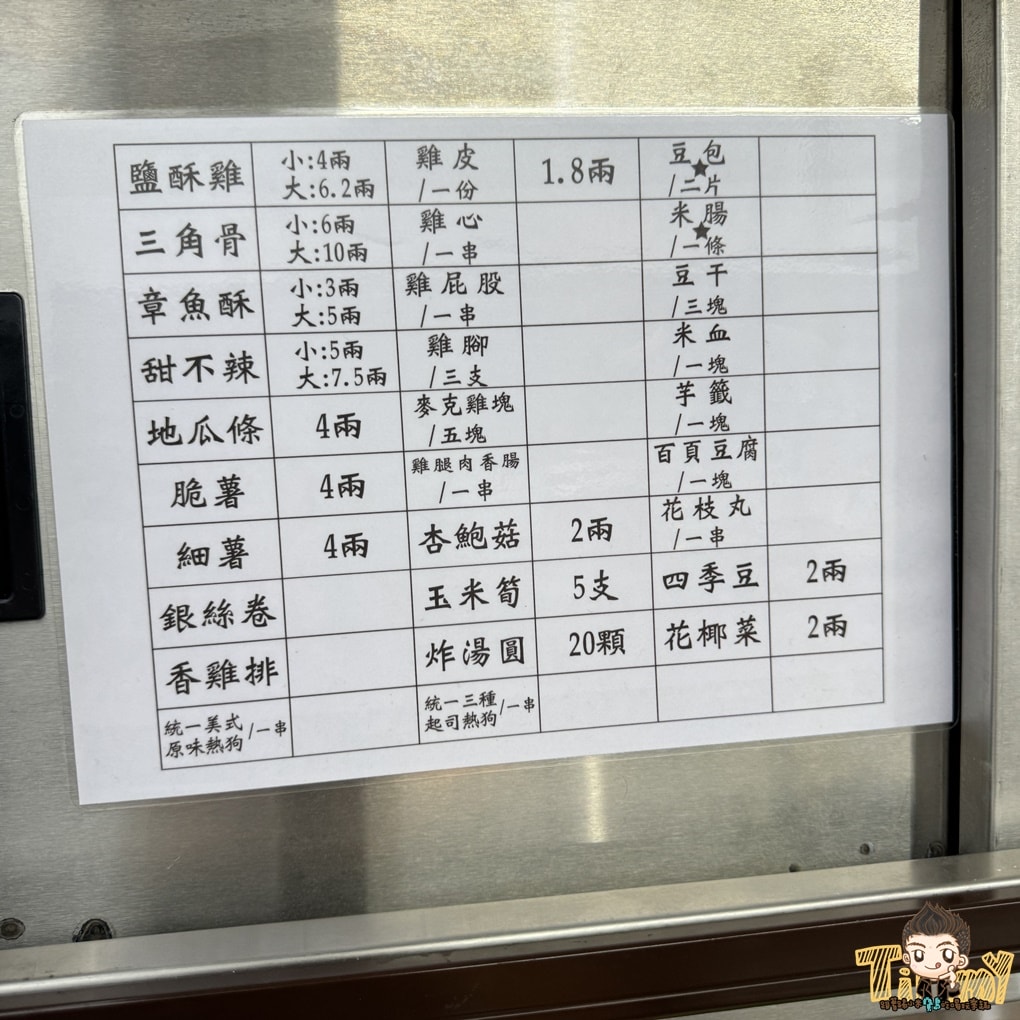 鹽酥雞
小:4兩
大:6.2兩
雞皮
/一份
1.8兩
豆包
★
/二片
三角骨
小:6兩
大:10兩
雞心
/一串
米腸
★
/一條
章魚酥
小:3兩
大:5兩
雞屁股
/一串
豆干
/三塊
甜不辣
小:5兩
大:7.5兩
雞腳
/三支
米血
/一塊
地瓜條
4兩
麥克雞塊
/五塊
芋籤
/一塊
脆薯
4兩
雞腿肉香腸
/一串
百頁豆腐
/一塊
細薯
4兩
杏鮑菇
2兩
花枝丸
/一串
銀絲卷
玉米筍
5支
四季豆
2兩
香雞排
炸湯圓
20顆
花椰菜
2兩
統一美式
原味熱狗
/一串
統一三種
起司熱狗
/一串